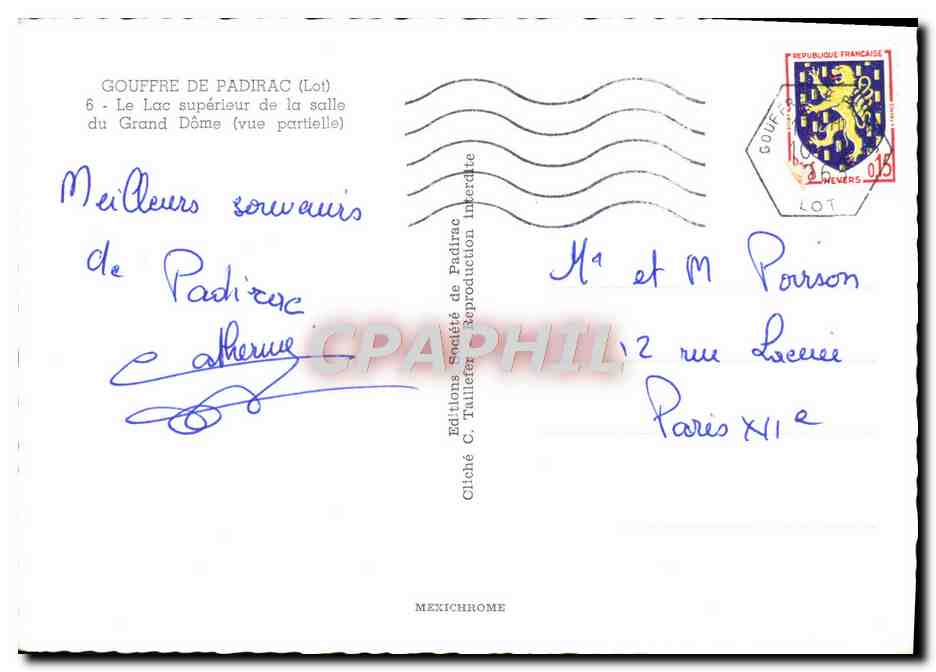 GOUFFRE DE PADIRAC (Lot)
6 - Le Lac supérieur de la salle
du Grand Dôme (vue partielle)
Meilleurs souvenirs
de Padirac
Catherine
Editions Société de Padirac
Cliché C. Taillefer Reproduction interdite
REPUBLIQUE FRANÇAISE
NEVERS
0,15
GOUFFR
LOT
Me et M Poirson
12 rue
Paris XIe
CPAPHIL
MEXICHROME